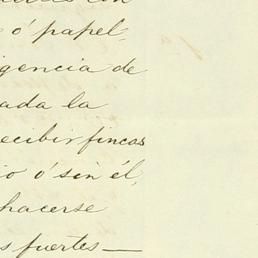 ó papel,
gencia de
ada la
ecibir fincas
io ó sin él,
hacerse
s fuertes —